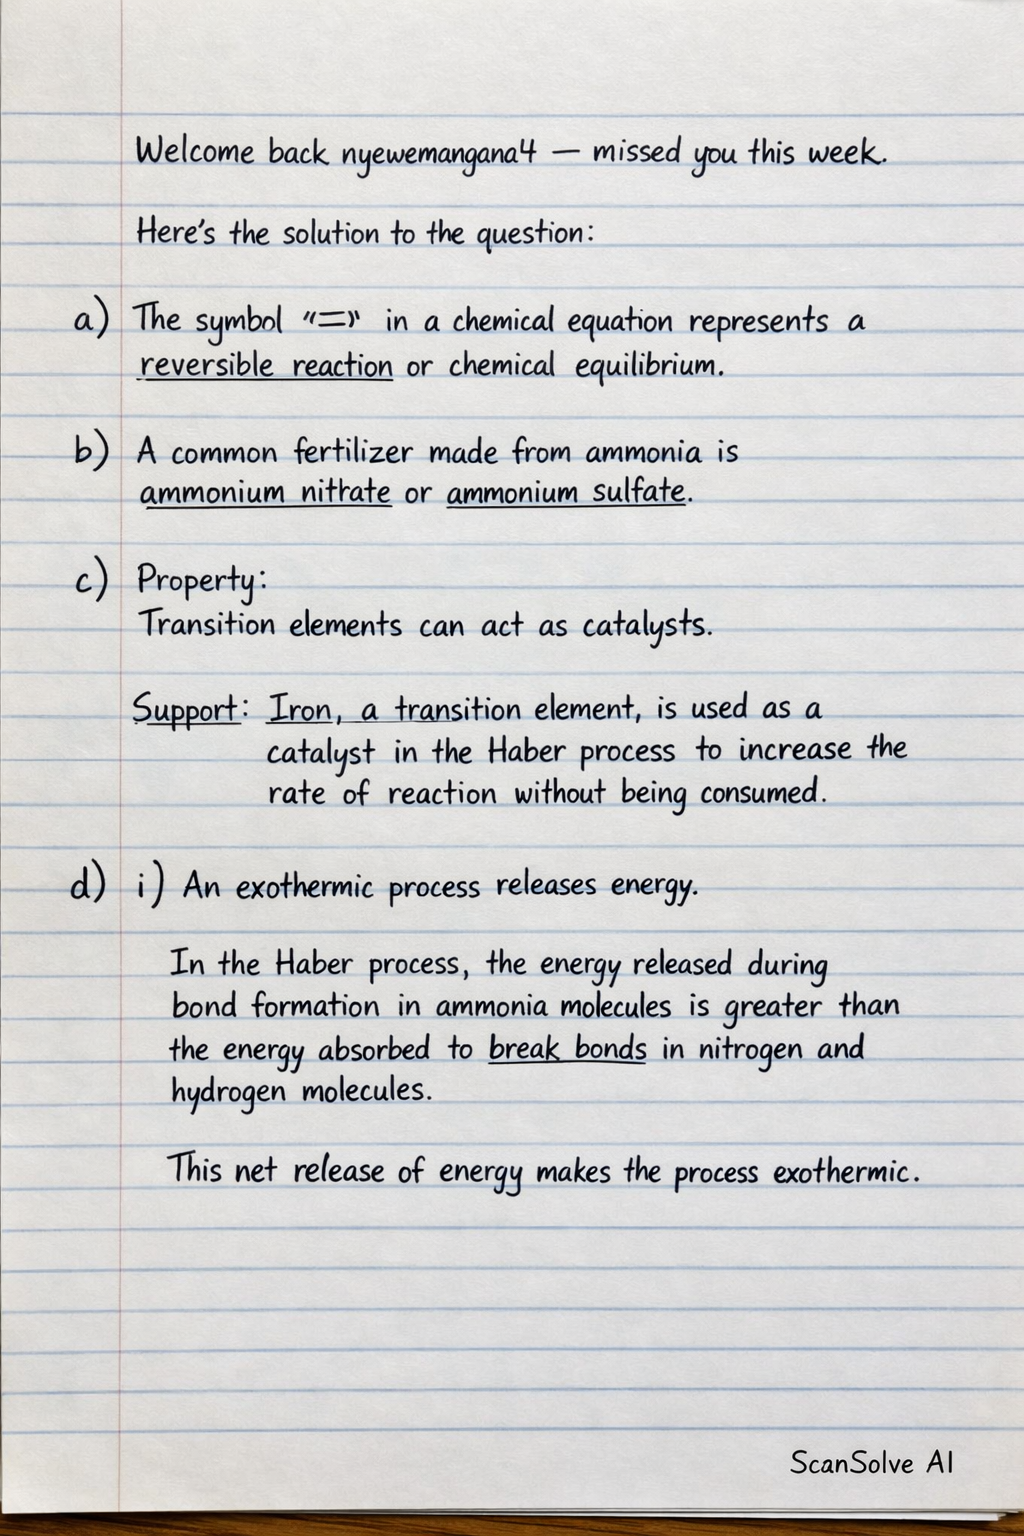 Welcome back nyewemangana4 — missed you this week.
Here's the solution to the question:
a) The symbol "⇌" in a chemical equation represents a
reversible reaction or chemical equilibrium.
b) A common fertilizer made from ammonia is
ammonium nitrate or ammonium sulfate.
c) Property:
Transition elements can act as catalysts.
Support: Iron, a transition element, is used as a
catalyst in the Haber process to increase the
rate of reaction without being consumed.
d) i) An exothermic process releases energy.
In the Haber process, the energy released during
bond formation in ammonia molecules is greater than
the energy absorbed to break bonds in nitrogen and
hydrogen molecules.
This net release of energy makes the process exothermic.
ScanSolve AI